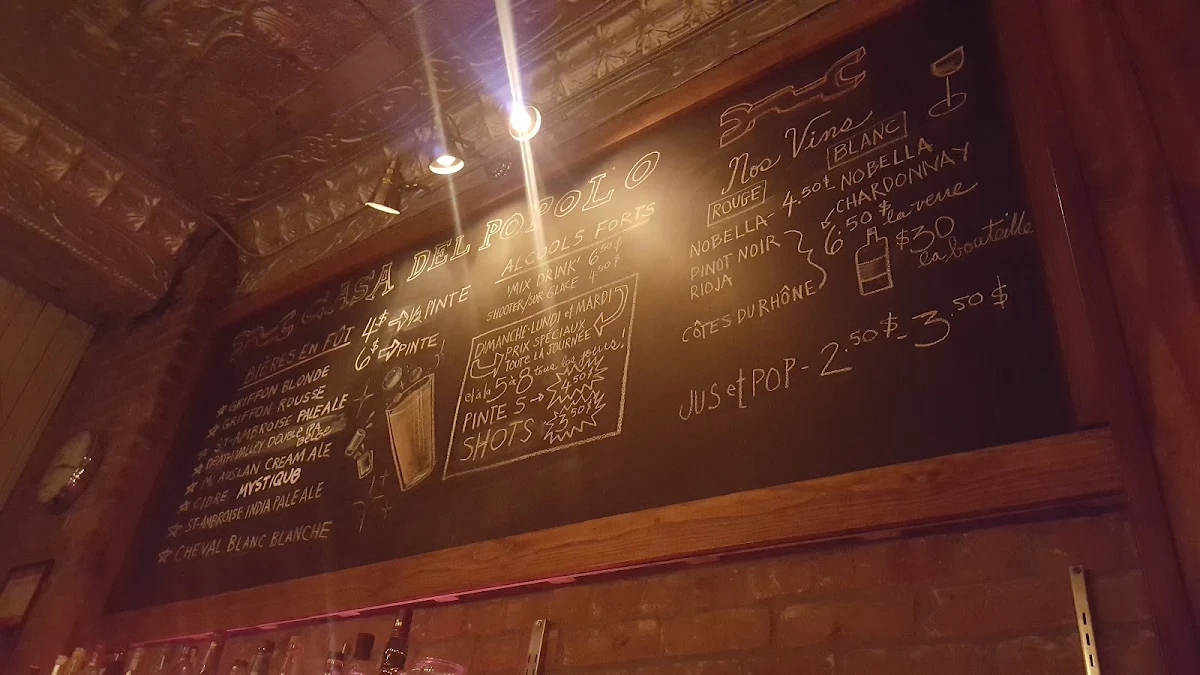 CASA DEL POPOLO
BIÈRES EN FÛT
4$ ½ PINTE
6$ PINTE
GRIFFON BLONDE
GRIFFON ROUSSE
ST-AMBROISE PALE ALE
DEATH VALLEY DOUBLE IPA
BELGE
MCAUSLAN CREAM ALE
CIDRE MYSTIQUE
ST-AMBROISE INDIA PALE ALE
CHEVAL BLANC BLANCHE
ALCOOLS FORTS
'MIX DRINK' 6.50$
SHOOTER/SUR GLACE 4.50$
DIMANCHE-LUNDI et MARDI
PRIX SPÉCIAUX
TOUTE LA JOURNÉE
et à la 5 à 8 tous les jours!
PINTES 4.50$
SHOTS 3.50$
Nos Vins
ROUGE
NOBELLA- 4.50$
PINOT NOIR
RIOJA
CÔTES DU RHÔNE
BLANC
NOBELLA
CHARDONNAY
6.50$ la verre
$30
la bouteille
JUS et POP - 2.50$ - 3.50$